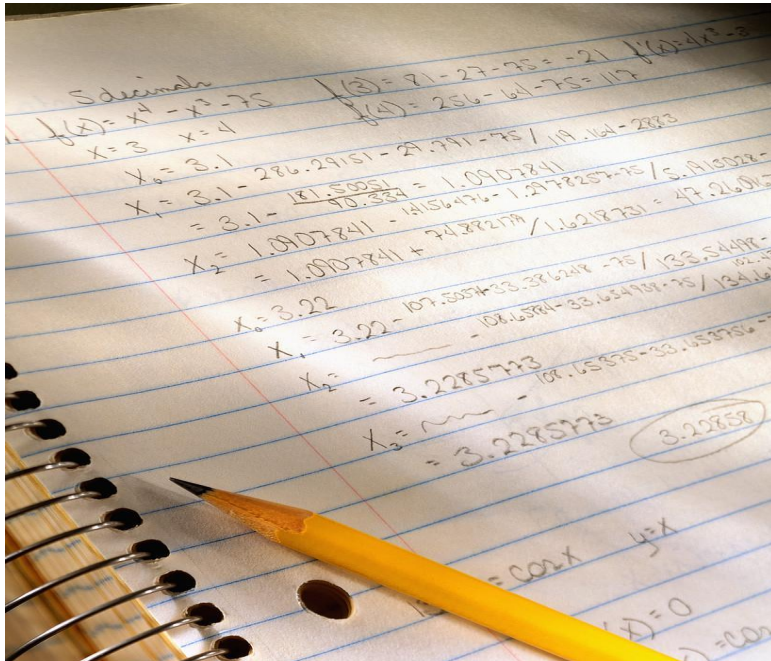 5 decimals
1. f(x) = x⁴ - x³ - 75 f(3) = 81 - 27 - 75 = -21 f'(x) = 4x³ - 3
x = 3 x = 4 f(4) = 256 - 64 - 75 = 117
x₀ = 3.1
x₁ = 3.1 - 286.29151 - 29.791 - 75 / 119.164 - 28.83
= 3.1 - 181.50051 / 90.334 = 1.0907841
x₂ = 1.0907841 - 1.4156476 - 1.2978257 - 75 / 5.1913028 -
= 1.0907841 + 74.882179 / 1.6218731 = 47.26096
x₀ = 3.22
x₁ = 3.22 - 107.50374 - 33.386248 - 75 / 133.54498 -
x₂ = - 108.65884 - 33.654938 - 75 / 134.6
= 3.2285773
x₃ = - 108.65375 - 33.653756 -
= 3.2285773 3.22858
= cos x y = x
(x) = 0
) = cos